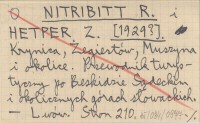 NITRIBITT R. i
HETPER Z. [1924?]
Krynica, Żegiestów, Muszyna
i okolice. Przewodnik turys-
tyczny po Beskidzie Sądeckim
i okolicznych górach słowackich.
— Lwów. Stron 210.